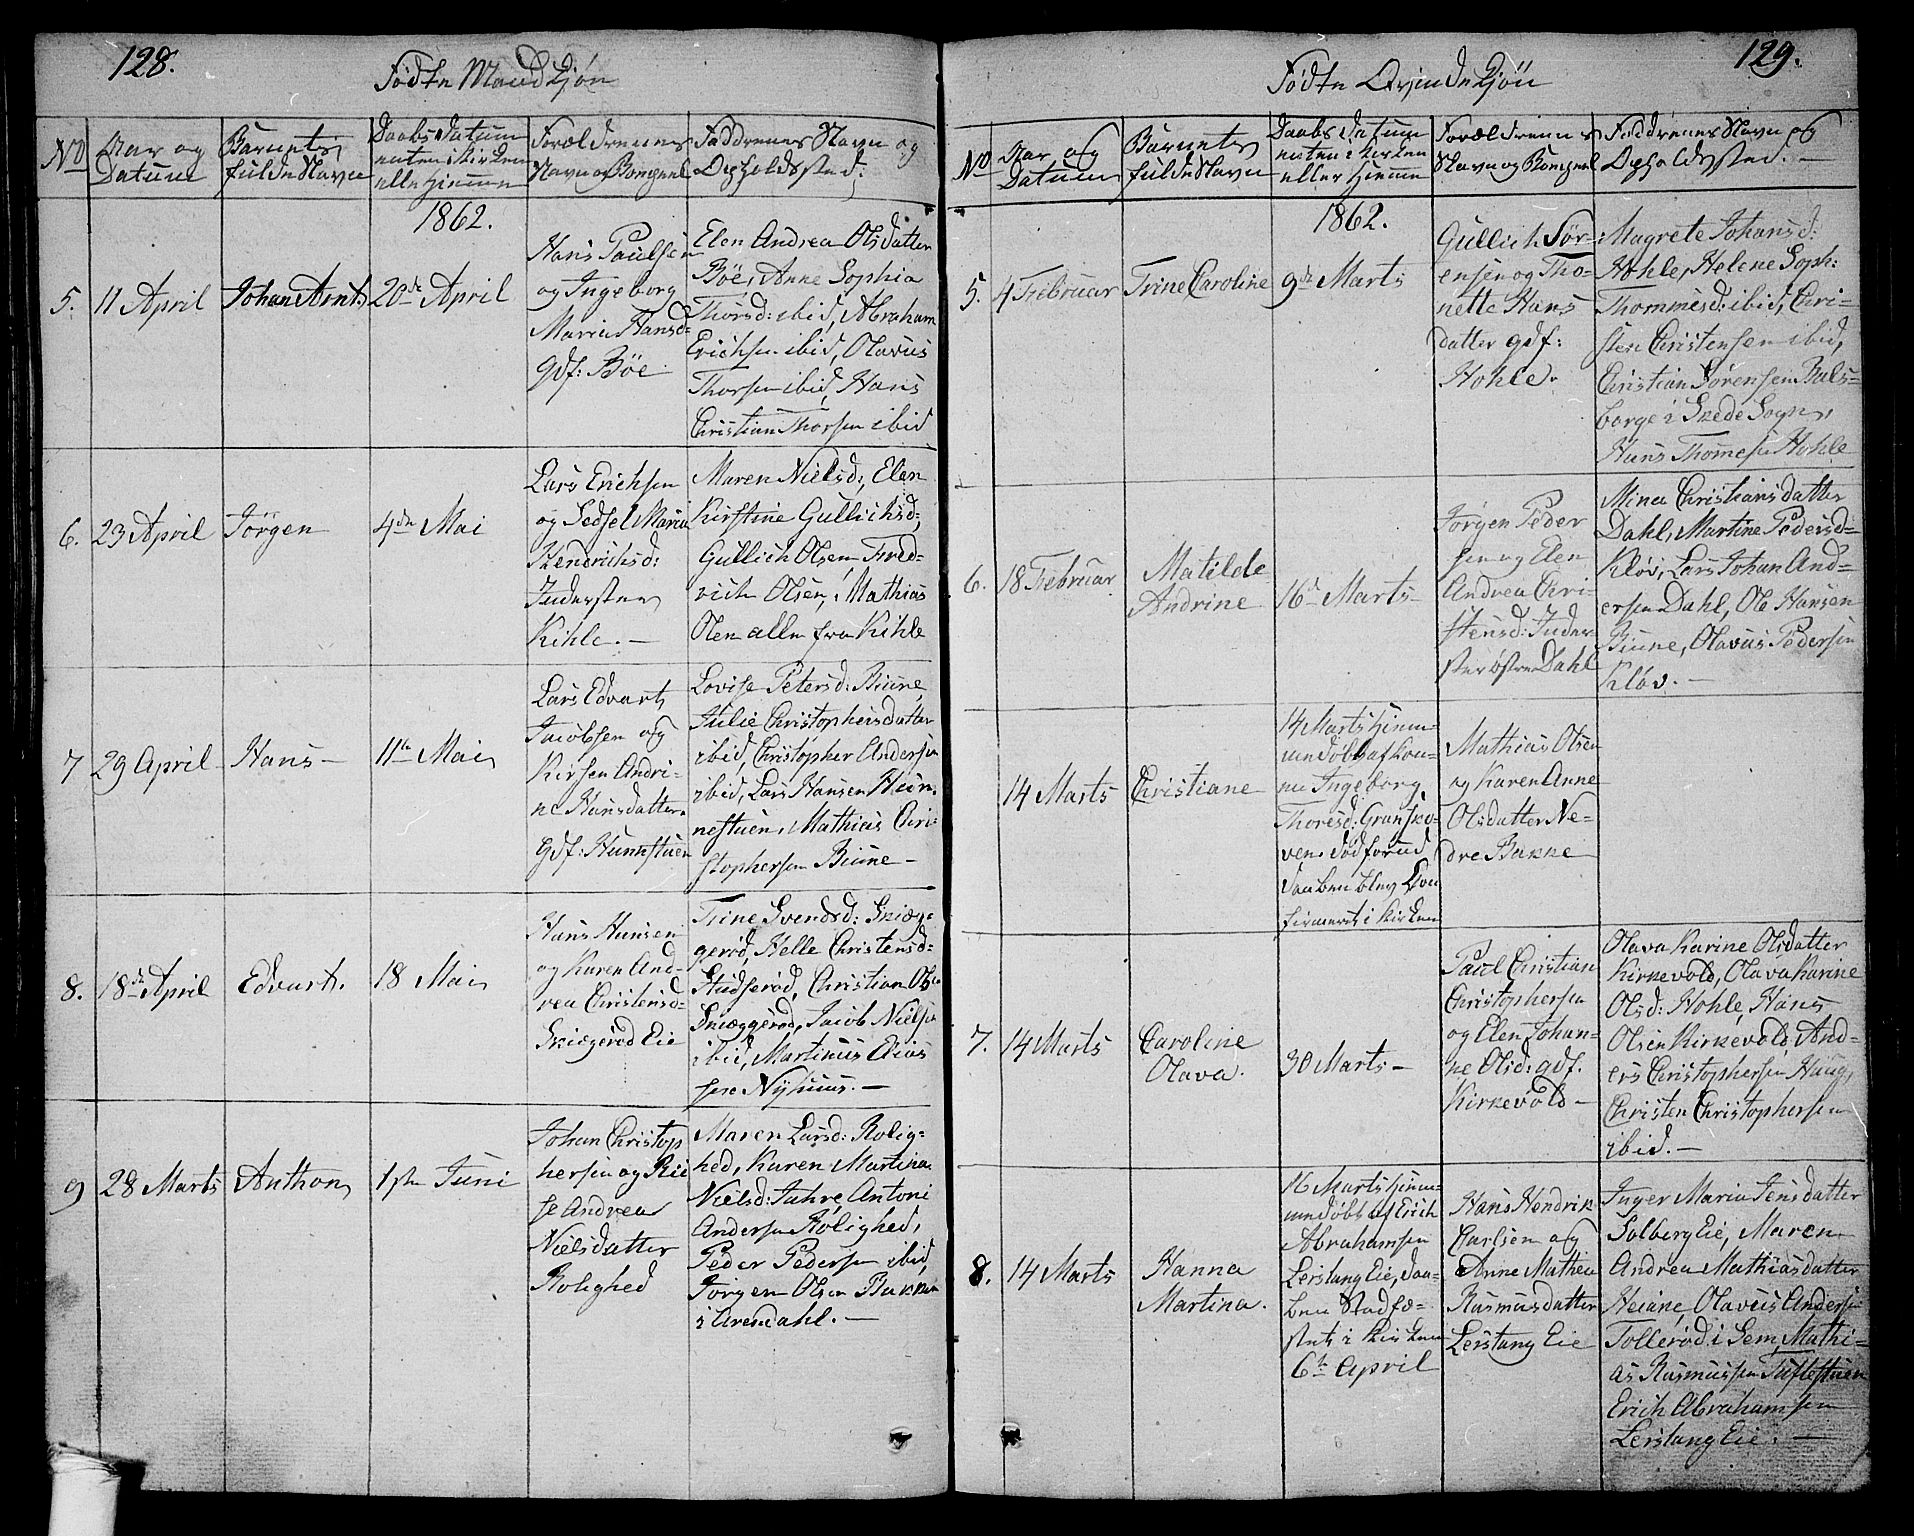 128.
Födte Mandkjøn
No
Aar og
Datum
Barnets
fulde Navn
Daabs Datum
enten i Kirken
eller hjemme
Forældrenes
Navn og Bopæl
Faddrenes Navn og
Opholdssted:
1862.
5.
11 April
Johan Arnt
20de April
Hans Paulsen
og Ingeborg
Maria Hansd:
gdf: Böe
Elen Andrea Olsdatter
Böe, Anne Sophia
Thorsd: ibid, Abraham
Erichsen ibid, Olavus
Thorsen ibid, Hans
Christian Thorsen ibid
6.
23 April
Jörgen
4de Mai
Lars Erichsen
og Sedsel Maria
Hendrichsd:
Inderster
Kihle. —
Maren Nielsd:, Elen
Kirstine Gullichsd:
Gullich Olsen, Fred-
rich Olsen, Mathias
Olsen alle fra Kihle
7
29 April
Hans —
11te Mai
Lars Edvart
Jacobsen og
Kirsten Andri-
ne Hansdatter
gdf:
Lovise Petersd: Biune
Julie Christophersdatter
ibid, Christopher Andersen
ibid, Lars Hansen
Mathias Chri-
stophersen Biune —
8.
18de April
Edvart.
18 Mai
Hans Hansen
og Karen And-
rea Christensd:
Skiægeröd Eie
Trine Svendsd: Skiæg-
geröd, Helle Christensd:
Christian Olsen
Skiæggeröd, Jacob Nielsen
ibid, Martinus Elias
sen Nyhuus. —
9
28 Marts
Anthon
1ste Juni
Johan Christop
hersen og
se Andrea
Nielsdatter
Rolighed
Maren Larsd: Rolig-
hed, Karen Martina
Nielsd: Jahre, Antoni
Andersen Rolighed,
Peder Pedersen ibid,
Jörgen Olsen Bakken
i Arendahl. —
129.
Födte Qvindekjön
No
Aar og
Datum
Barnets
fulde Navn
Daabs Datum
enten i Kirken
eller hjemme
Forældrenes
Navn og Bopæl
Faddrenes Navn og
Opholdssted. —
1862.
5.
4 Februar
Trine Caroline
9de Marts
Gullich Sör-
ensen og Tho-
nette Hans
datter gdf:
Hohle.
Magrete Johansd:
Hohle, Helene Soph:
Thommesd: ibid, Chri-
sten Christensen ibid,
Christian Sørensen Bals-
berge i Skede Sogn,
Hans Thomesen Hohle
6.
18 Februar
Matilde
Andrine
16de Marts —
Jörgen Peder
sen og Elen
Andrea Chri-
stensd: Inder-
ster östre Dahl
Mina Christiansdatter
Dahl, Martine Pedersd:
Klöv, Lars Johan And-
ersen Dahl, Ole Hansen
Biune, Olavus Pedersen
Klöv. —
14 Marts
Christiane
14 Marts hjem-
medöbt af Kon-
en Ingeborg
Thoresd: Gransko-
ven. död forend
Daaben blev Con
firmeret i Kirken
Mathias Olsen
og Karen Anne
Olsdatter Ne-
dre Bakke
7.
14 Marts
Caroline
Olava.
30 Marts —
Paul Christian
Christophersen
og Elen Johan-
ne Olsd: gdf.
Kirkevold —
Olava Karine Olsdatter
Kirkevold, Olava Karine
Olsd: Hohle, Hans
Olsen Kirkevold, And-
ers Christophersen Haug,
Christen Christophersen
ibid. —
8.
14 Marts
Hanna
Martina.
16 Marts hjem-
medöbt af Erich
Abrahamsen
Lerstang Eie, Daa-
ben Stadfæ-
stet i Kirken
6te April
Hans Hendrik
Carlsen og
Anne Mathea
Rasmusdatter
Lerstang Eie
Inger Maria Jensdatter
Solberg Eie, Maren
Andrea Mathiasdatter
Olavus Andersen
Tolleröd i Sem, Mathi-
as Rasmussen
Erich Abrahamsen
Lerstang Eie. —